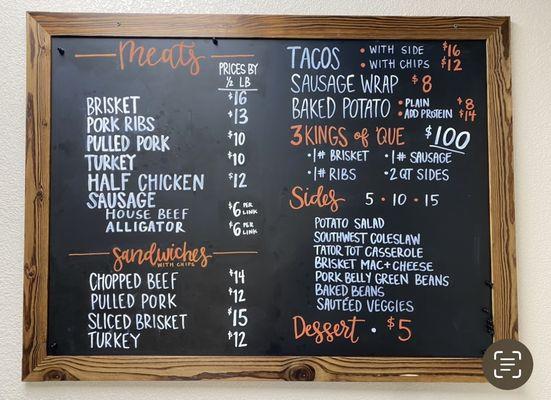 Meats
PRICES BY
½ LB
BRISKET $16
PORK RIBS $13
PULLED PORK $10
TURKEY $10
HALF CHICKEN $12
SAUSAGE
HOUSE BEEF $6 PER LINK
ALLIGATOR $6 PER LINK
Sandwiches
WITH CHIPS
CHOPPED BEEF $14
PULLED PORK $12
SLICED BRISKET $15
TURKEY $12
TACOS • WITH SIDE $16
• WITH CHIPS $12
SAUSAGE WRAP $8
BAKED POTATO • PLAIN $8
• ADD PROTEIN $14
3 KINGS of 'QUE $100
• 1# BRISKET • 1# SAUSAGE
• 1# RIBS • 2 QT SIDES
Sides 5 • 10 • 15
POTATO SALAD
SOUTHWEST COLESLAW
TATOR TOT CASSEROLE
BRISKET MAC + CHEESE
PORK BELLY GREEN BEANS
BAKED BEANS
SAUTÉED VEGGIES
Dessert • $5